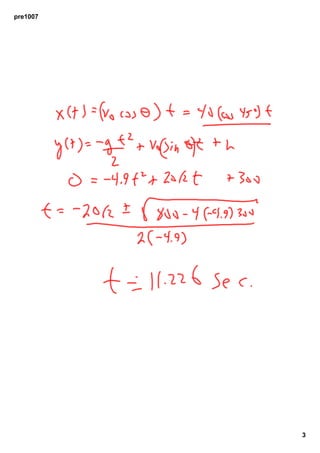 pre1007
x(t) = (v₀ cos θ) t = 40 (cos 45°) t
y(t) = -g t²/2 + v₀(sin θ)t + h
0 = -4.9 t² + 20√2 t + 300
t = (-20√2 ± √(800 - 4(-4.9) 300)) / 2(-4.9)
t ≐ 11.226 sec.
3